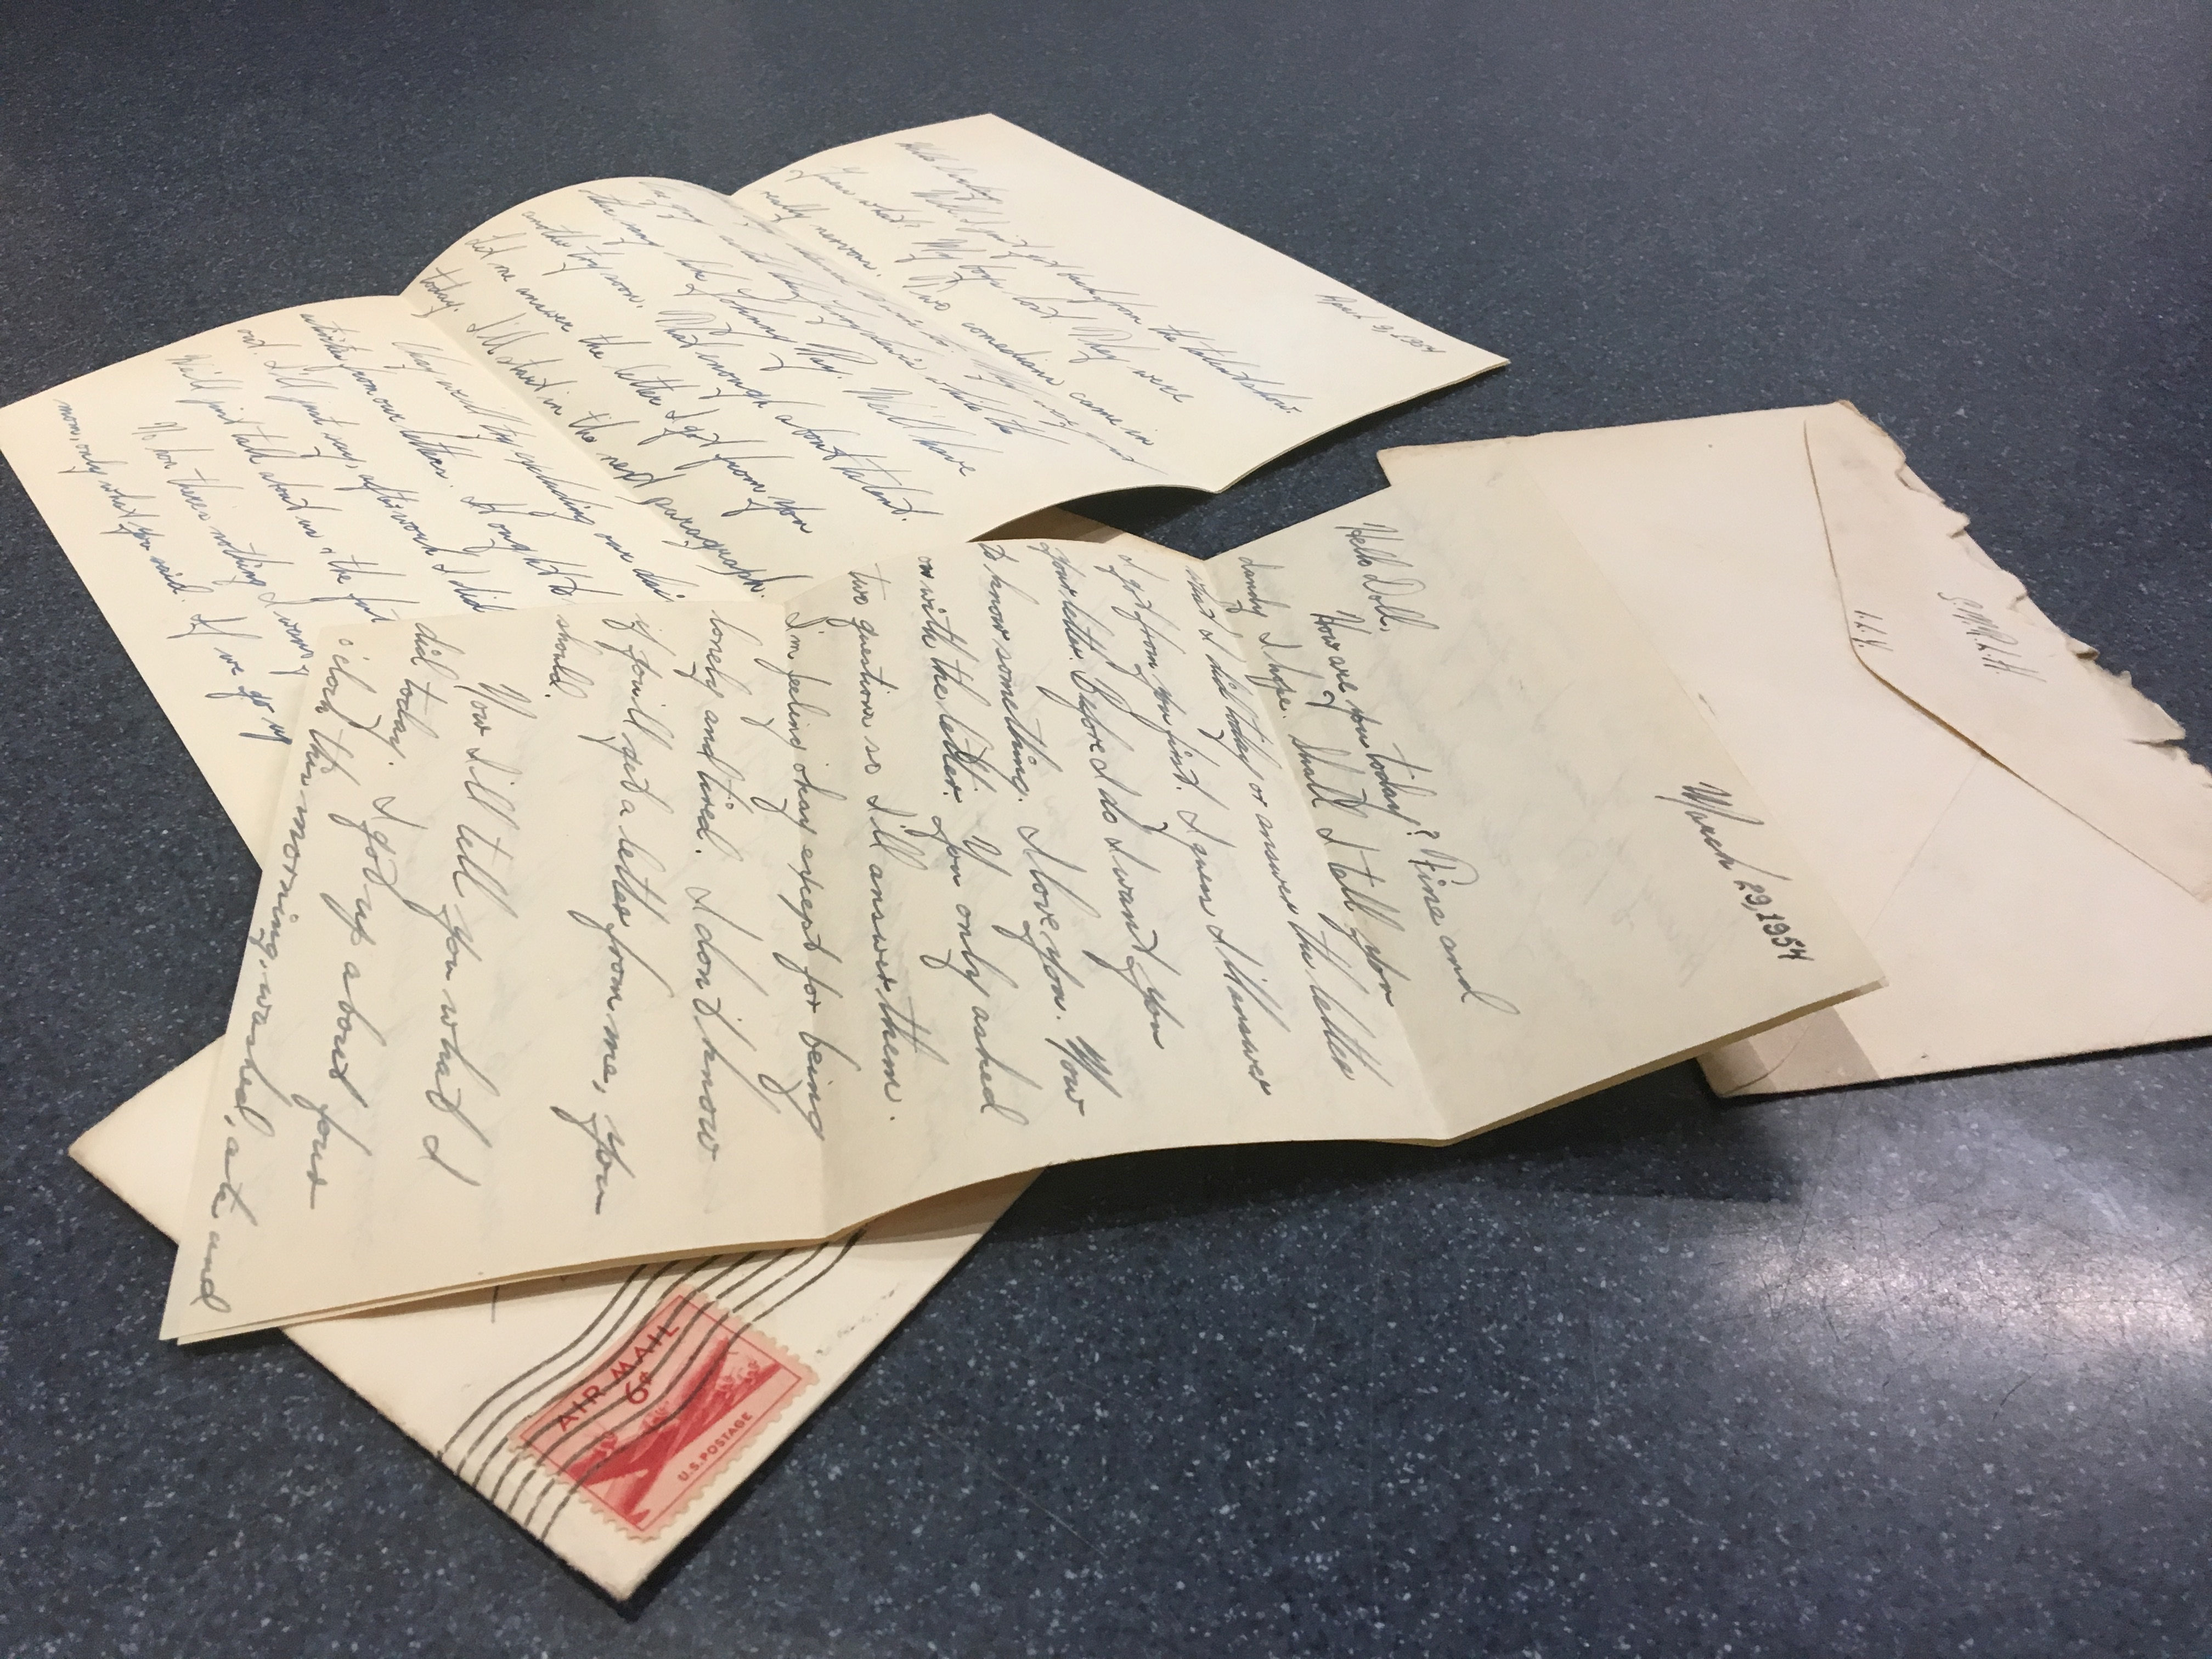 March 29, 1954
Hello Doll,
How are you today? Fine and
dandy I hope. Shall I tell you
what I did today or answer the letter
I got from you first. I guess I'll answer
your letter. Before I do I want you
to know something. I love you. Now
on with the letter. You only asked
two questions so I'll answer them.
I'm feeling okay except for being
lonely and tired. I don't know
if you'll get a letter from me, you
should.
Now I'll tell you what I
did today. I got up about four
o'clock this morning, washed, ate and
April 3, 1954
Hello
Well I just got back from the talent show.
Guess what? My boys lost. They were
really nervous. Two comedians came in
the
Johnny Ray. We'll have
another try soon. That's enough about talent.
Let me answer the letter I got from you
today. I'll start in the next paragraph.
Okay we'll try excluding our
activities from our letters. It ought to
out. I'll just say, after work I did
We'll just talk about us & the
No hon there's nothing
mom, only what you said. If we go up
S.W.A.K.
I.L.Y.
AIR MAIL
6¢
U.S. POSTAGE